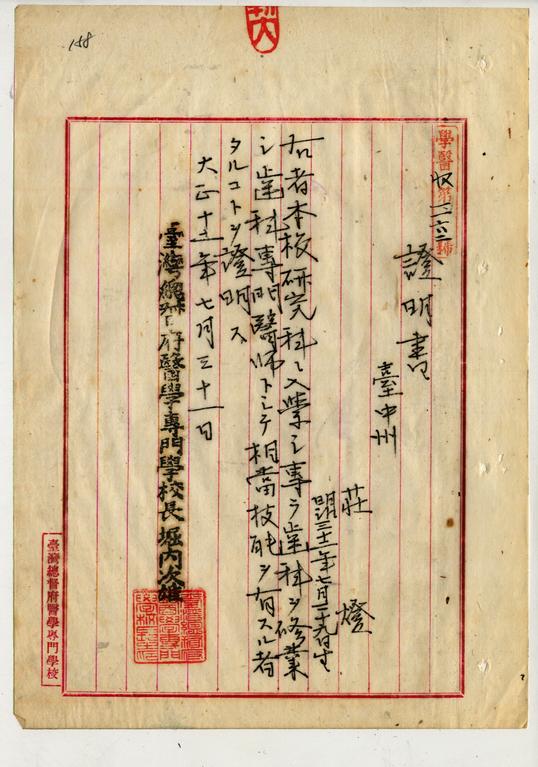 158
學醫收第二六二號
證明書
臺中州
莊 燈
明治三十一年七月二十九日生
右者本校研究科ニ入學シ專ラ歯科ヲ修業
シ歯科專門醫師トシテ相當技能ヲ有スル者
タルコトヲ證明ス
大正十五年七月三十一日
臺灣總督府醫學專門學校長 堀內次雄
臺灣總督府醫學專門學校